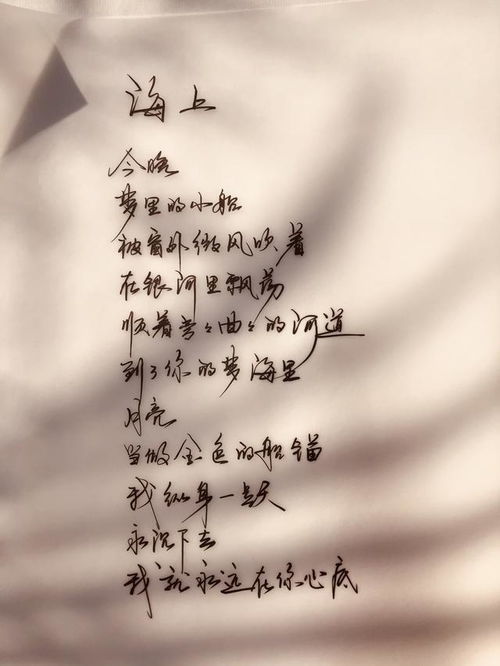 海上
今晚
梦里的小船
被窗外微风吹着
在银河里飘荡
顺着弯々曲々的河道
到了你的梦海里
月亮
当做金色的船锚
我纵身一跃
永沉下去
我就永远在你心底